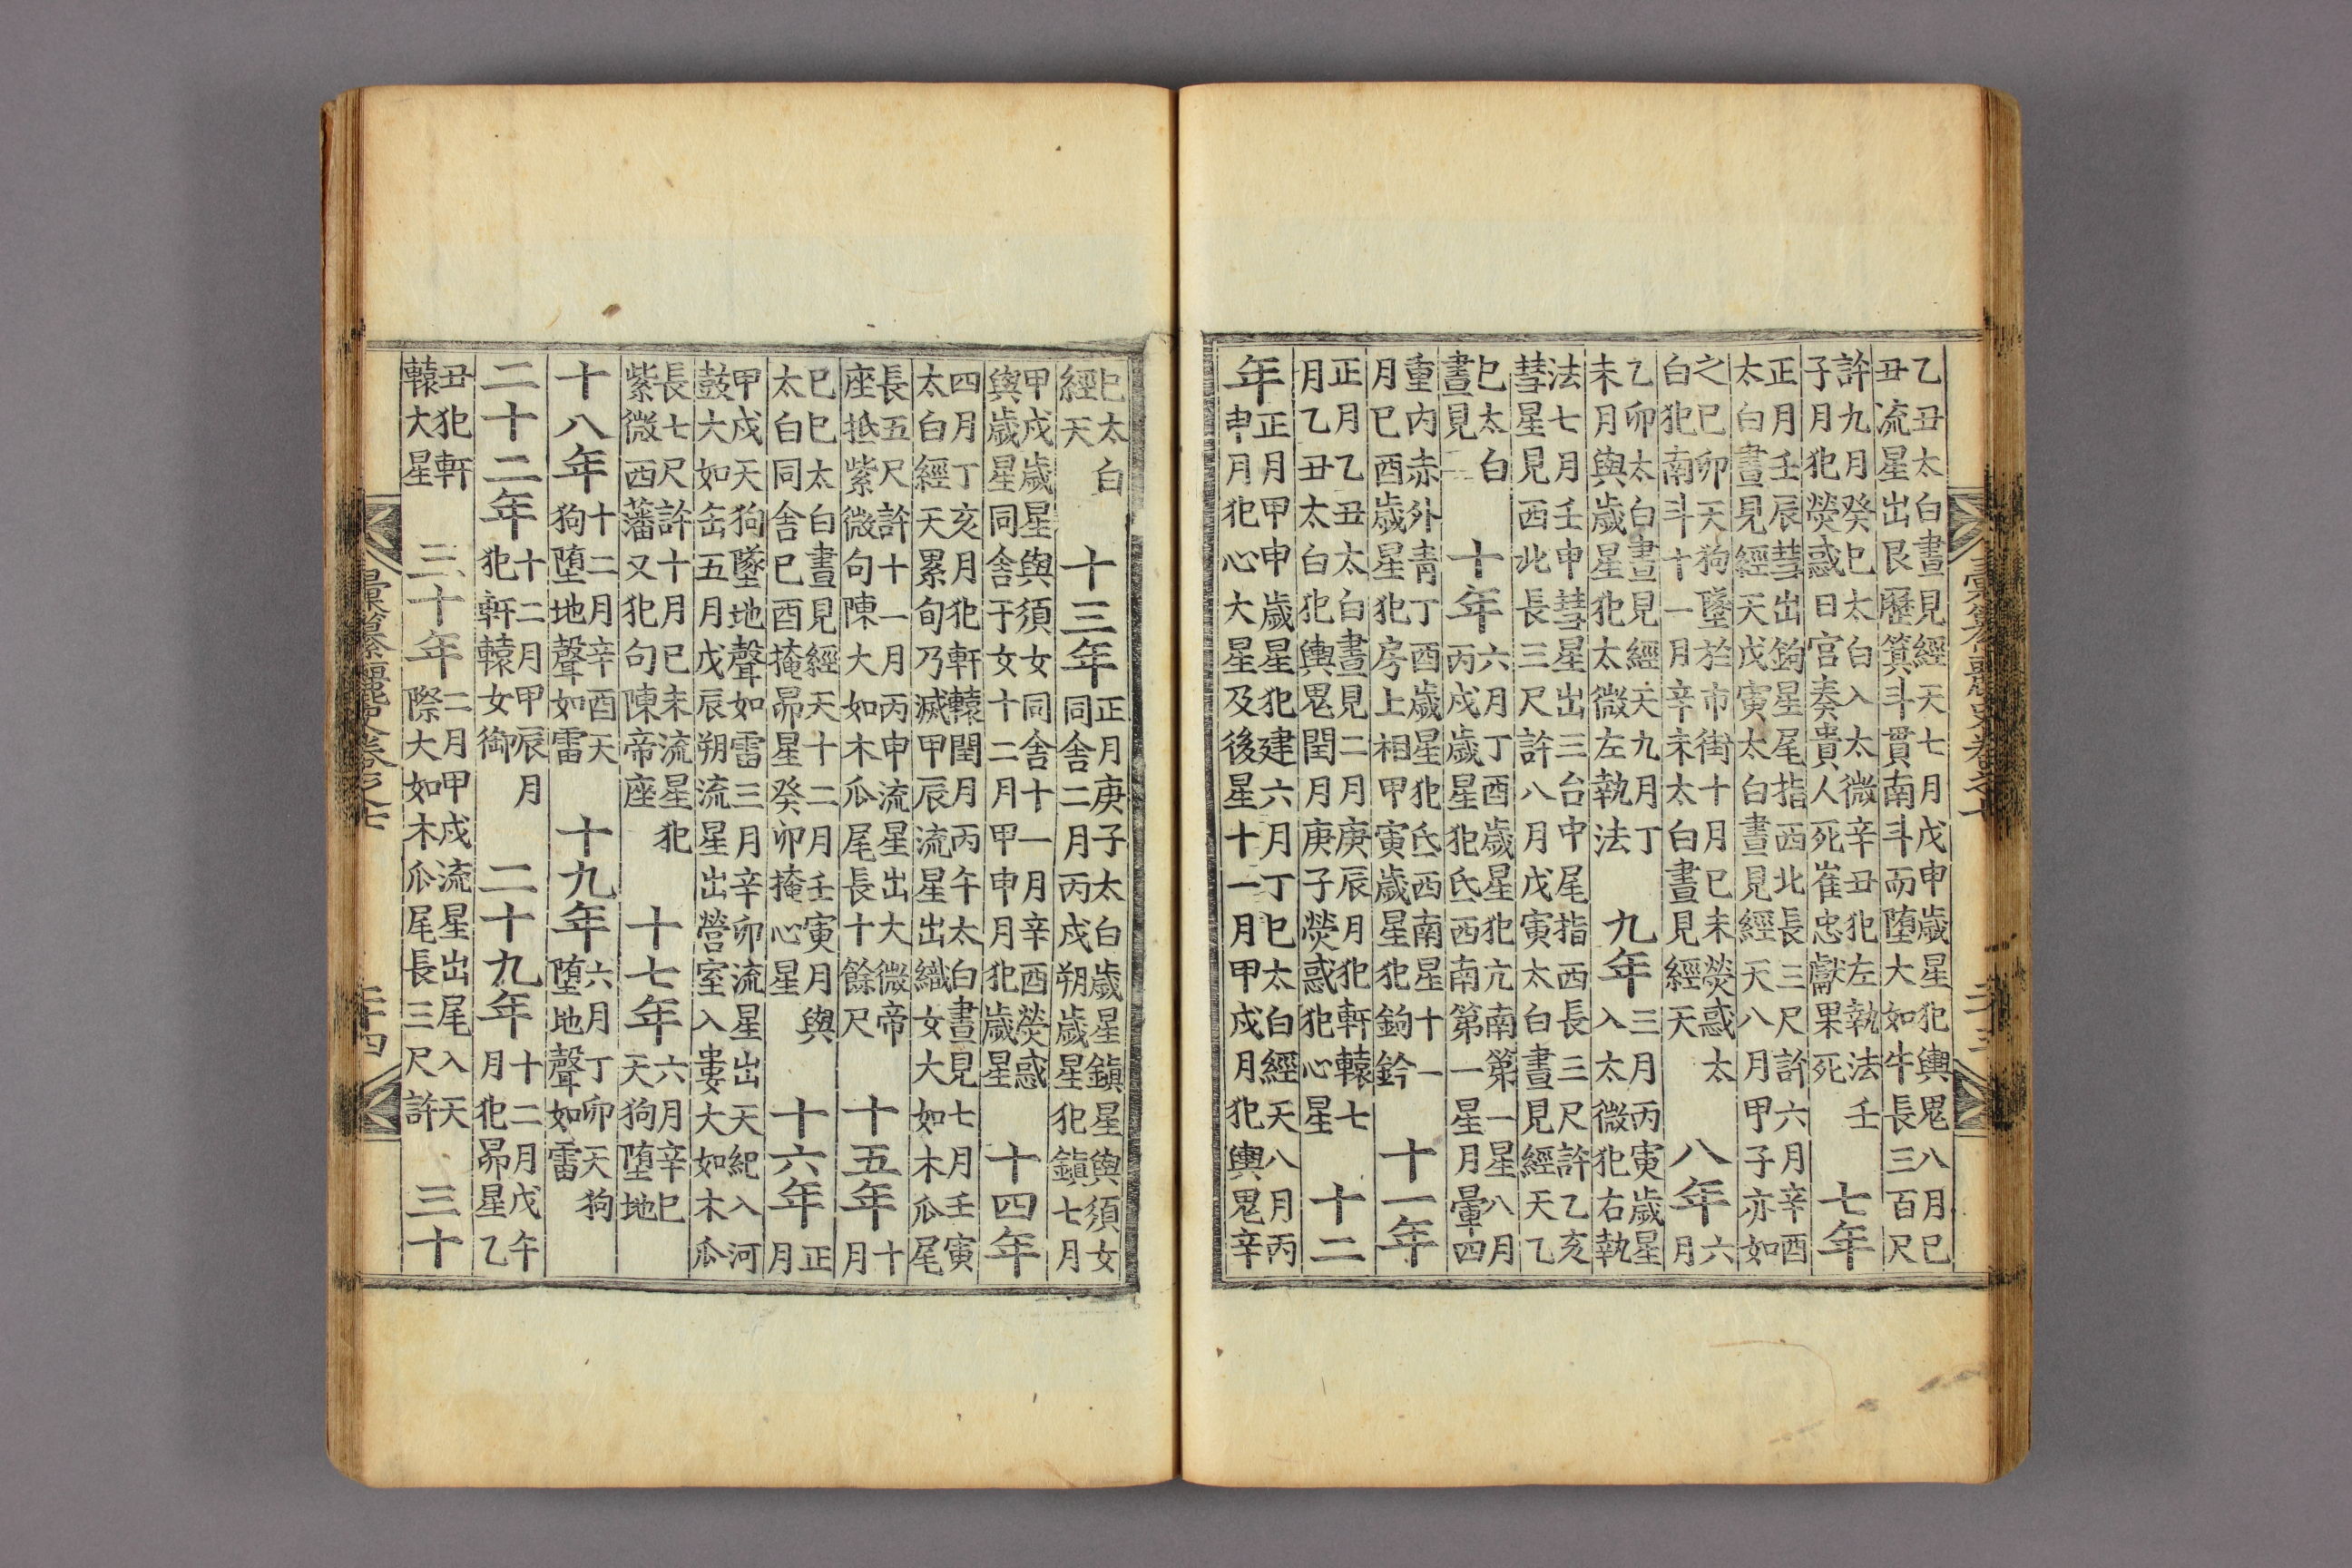 乙丑太白晝見經天七月戊申歲星犯輿鬼八月己
丑流星出艮歷箕斗貫南斗而墮大如牛長三百尺
許九月癸巳太白入太微辛丑犯左執法壬
子月犯熒惑日官奏貴人死崔忠獻果死
七年
正月壬辰彗出鉤星尾指西北長三尺許六月辛酉
太白晝見經天戊寅太白晝見經天八月甲子亦如
之己卯天狗墜於市街十月己未熒惑太
白犯南斗十一月辛未太白晝見經天
八年
六
月
乙卯太白晝見經天九月丁
未月與歲星犯太微左執法
九年
三月丙寅歲星
入太微犯右執
法七月壬申彗星出三台中尾指西長三尺許乙亥
彗星見西北長三尺許八月戊寅太白晝見經天乙
巳太白
晝見
十年
六月丁酉歲星犯亢南第一星八月
丙戌歲星犯氐西南第一星月暈四
重內赤外靑丁酉歲星犯氐西南星十一
月己酉歲星犯房上相甲寅歲星犯鉤鈐
十一年
正月乙丑太白晝見二月庚辰月犯軒轅七
月乙丑太白犯輿鬼閏月庚子熒惑犯心星
十二
年
正月甲申歲星犯建六月丁巳太白經天八月丙
申月犯心大星及後星十一月甲戌月犯輿鬼辛
彙纂麗史卷之七
二十三
巳太白
經天
十三年
正月庚子太白歲星鎭星與須女
同舍二月丙戌朔歲星犯鎭七月
甲戌歲星與須女同舍十一月辛酉熒惑
與歲星同舍于女十二月甲申月犯歲星
十四年
四月丁亥月犯軒轅閏月丙午太白晝見七月壬寅
太白經天累旬乃滅甲辰流星出織女大如木瓜尾
長五尺許十一月丙申流星出大微帝
座抵紫微句陳大如木瓜尾長十餘尺
十五年
十
月
己巳太白晝見經天十二月壬寅月與
太白同舍己酉掩昴星癸卯掩心星
十六年
正
月
甲戌天狗墜地聲如雷三月辛卯流星出天紀入河
鼓大如缶五月戊辰朔流星出營室入婁大如木瓜
長七尺許十月己未流星犯
紫微西藩又犯句陳帝座
十七年
六月辛巳
天狗墮地
十八年
十二月辛酉天
狗墮地聲如雷
十九年
六月丁卯天狗
墮地聲如雷
二十二年
十二月甲辰月
犯軒轅女御
二十九年
十二月戊午
月犯昴星乙
丑犯軒
轅大星
三十年
二月甲戌流星出尾入天
際大如木瓜尾長三尺許
三十
彙纂麗史卷之七
二十四